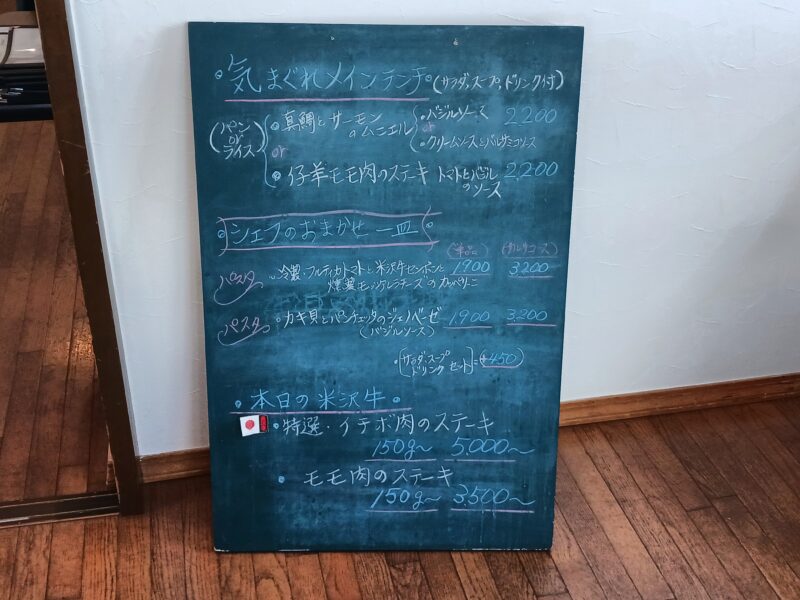 気まぐれメインランチ (サラダ、スープ、ドリンク付)
(パン or ライス)
・真鯛とサーモンのムニエル
・バジルソース 2200
or
・クリームソースとバルサミコソース
or
・仔羊モモ肉のステーキ トマトとバジルのソース 2,200
シェフのおまかせ一皿
(単品) (ランチコース)
パスタ ・冷製・フルティカトマトと米沢牛センボンと 1,900 3,200
燻製モッツァレラチーズのカッペリーニ
パスタ ・カキ貝とパンチェッタのジェノベーゼ 1,900 3,200
(バジルソース)
・[サラダ、スープ ドリンク セット]=(+450)
・本日の米沢牛・
・特選・イチボ肉のステーキ
150g〜 5,000〜
・モモ肉のステーキ
150g〜 3,500〜